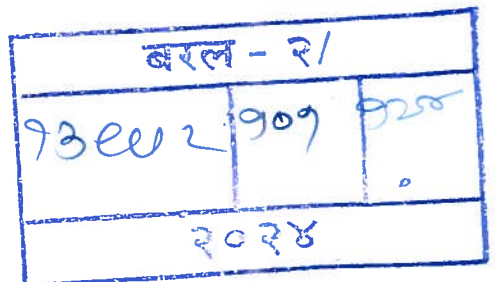 बरल - २/
१३९७२ १०१ १२४
२०२४